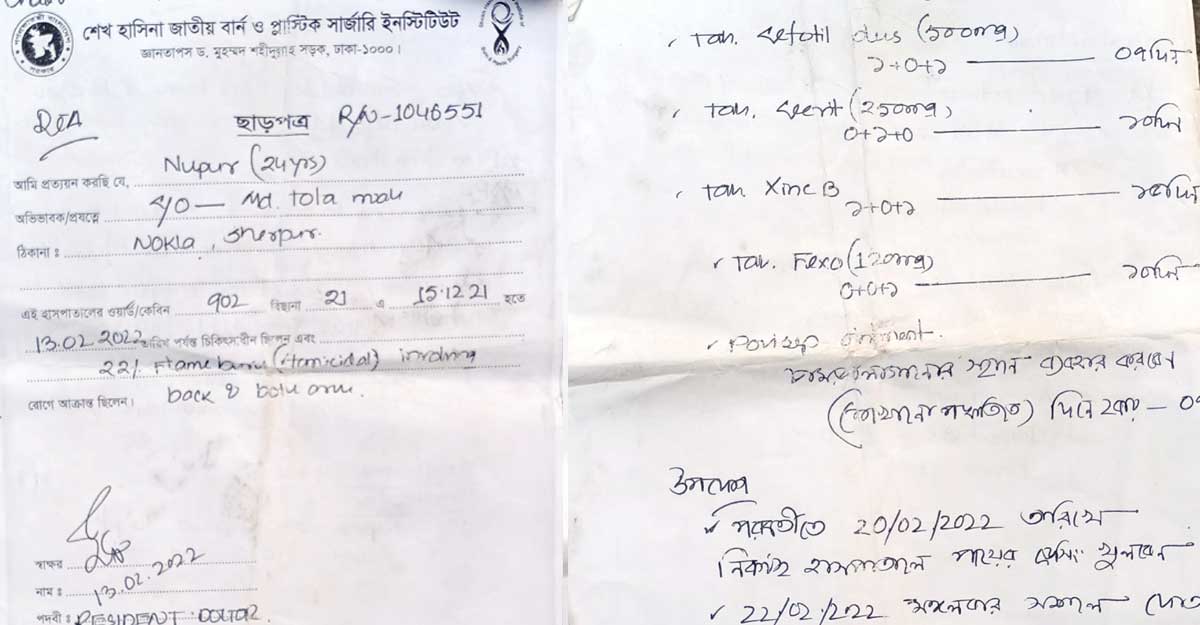 শেখ হাসিনা জাতীয় বার্ন ও প্লাস্টিক সার্জারি ইনস্টিটিউট
জ্ঞানতাপস ড. মুহম্মদ শহীদুল্লাহ সড়ক, ঢাকা-১০০০।
ছাড়পত্র R/N-1046551
আমি প্রত্যয়ন করছি যে, Nupur (24 yrs)
অভিভাবক/প্রযত্নে Md. Tola
ঠিকানা : Nokla, Sherpur.
এই হাসপাতালের ওয়ার্ড/কেবিন 902 বিছানা 21 এ 15.12.21 হতে
13.02.2022 তারিখ পর্যন্ত চিকিৎসাধীন ছিলেন এবং
22% Flame burn (Homicidal) involving
রোগে আক্রান্ত ছিলেন। back & both arm.
স্বাক্ষর
নাম : 13.02.2022
পদবী : RESIDENT DOCTOR
Tab. Sefotil plus (500mg)
১+০+১ — ০৭দিন
(250mg)
০+১+০ — ১০দিন
Tab. Xinc B
১+০+১ — ১৫দিন
Tab. Fexo (120mg)
০+০+১ — ১০দিন
Povisep ointment
স্থানে ব্যবহার করবেন
উপদেশ
পরবর্তীতে 20/02/2022 তারিখে
নিকটস্থ হাসপাতালে পায়ের ড্রেসিং খুলবেন
22/02/2022 মঙ্গলবার সকালে